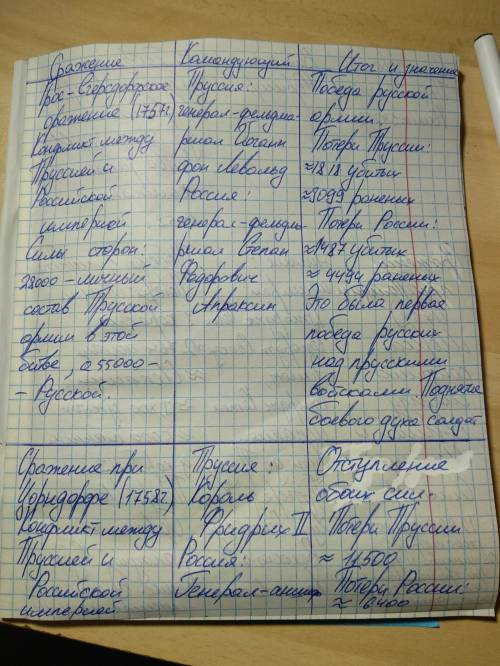 Сражение Командующий Итог и значение
Грос-Егерсдорфское Пруссия: Победа русской
сражение (1757г.) генерал-фельдма- армии.
Конфликт между ршал Иоганн Потери Пруссии:
Пруссией и фон Левальд ≈1818 убитых
Российской Россия: ≈3099 раненых
империей генерал-фельдма- Потери России:
Силы сторон: ршал Степан ≈1487 убитых
28000 - личный Фёдорович ≈ 4494 раненых
состав Прусской Апраксин Это была первая
армии в этой победа русских
битве, а 55000 - над прусскими
- Русской. войсками. Поднятие
боевого духа солдат
Сражение при Пруссия: Отступление
Цорндорфе (1758г.) Король обоих сил.
Конфликт между Фридрих II Потери Пруссии
Пруссией и Россия: ≈ 11500
Российской Генерал-аншеф Потери России:
империей ≈ 6400